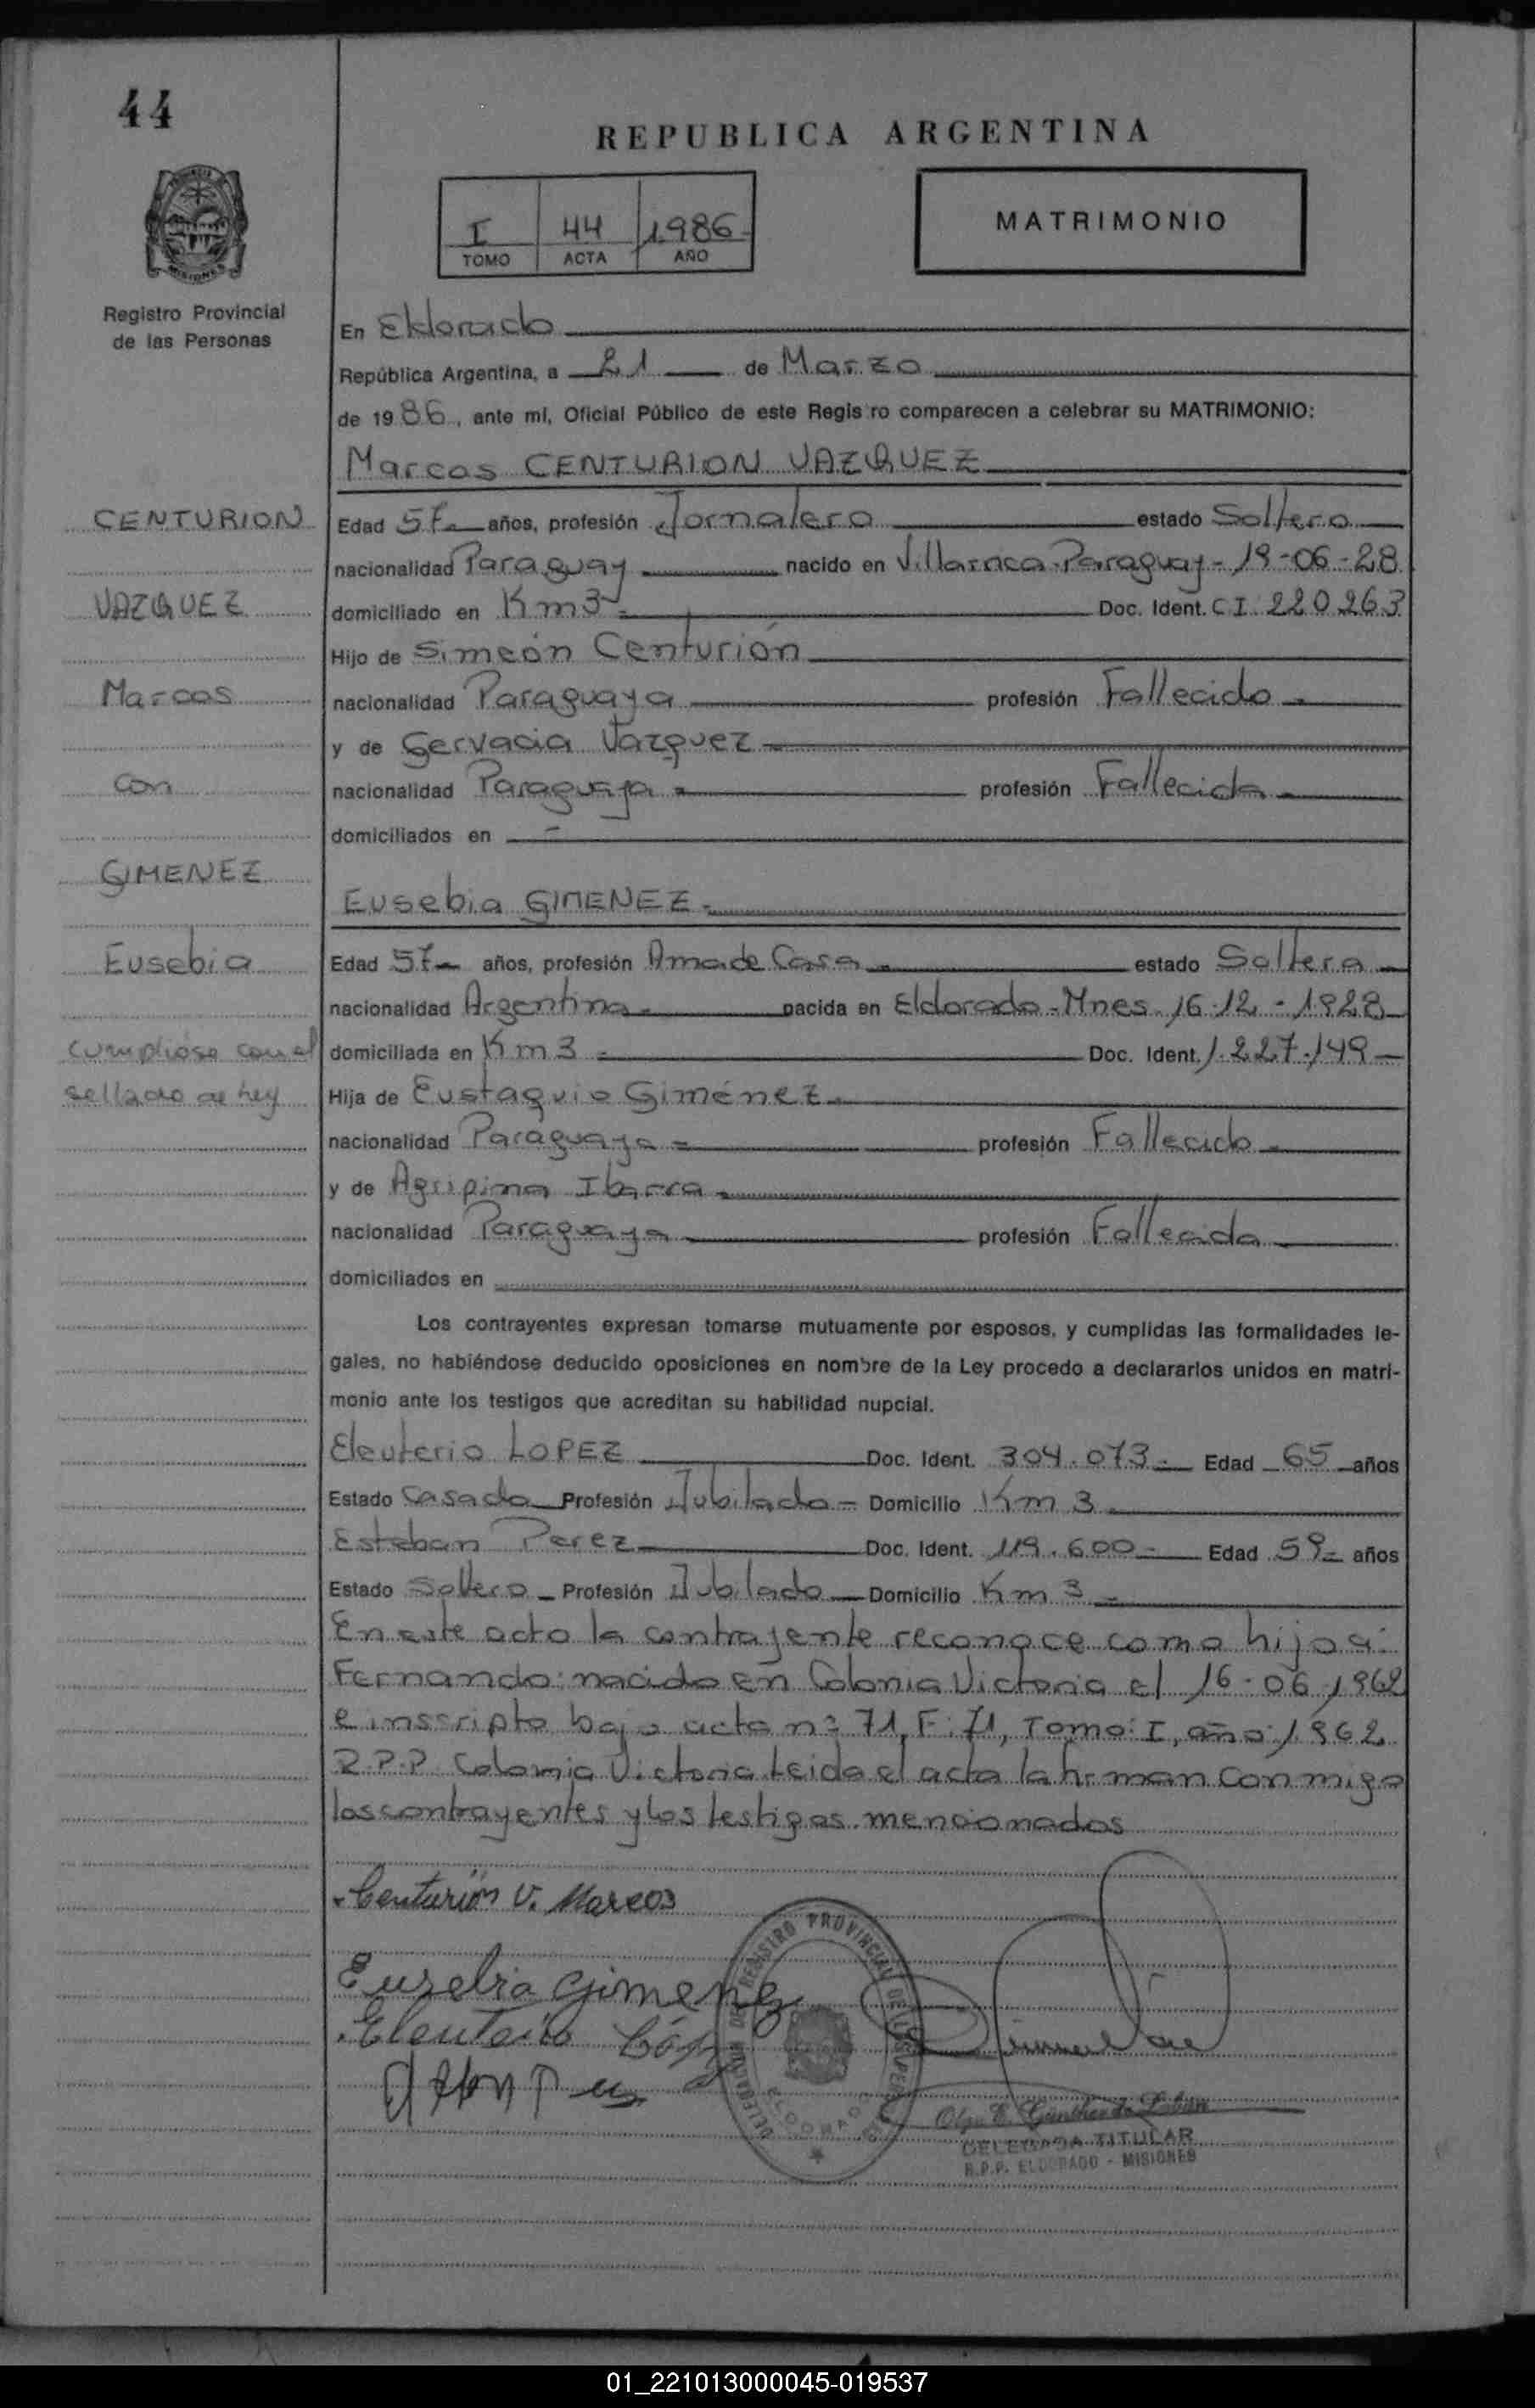 44
REPUBLICA ARGENTINA
I 44 1986
TOMO ACTA AÑO
MATRIMONIO
Registro Provincial
de las Personas
En Eldorado
República Argentina, a 21 de Marzo
de 1986, ante mí, Oficial Público de este Regis ro comparecen a celebrar su MATRIMONIO:
Marcos CENTURION VAZQUEZ
CENTURION
Edad 57 años, profesión Jornalero estado Soltero
nacionalidad Paraguay nacido en Villarrica-Paraguay- 19-06-28
VAZQUEZ
domiciliado en Km3 Doc. Ident. C I 220263
Hijo de Simeón Centurión
Marcos
nacionalidad Paraguaya profesión Fallecido
y de Gervacia Vazquez
con
nacionalidad Paraguaya profesión Fallecida
domiciliados en -
GIMENEZ
Eusebia GIMENEZ
Eusebia
Edad 57 años, profesión Ama de Casa estado Soltera
nacionalidad Argentina nacida en Eldorado-Mnes. 16-12-1928
cumpliose con el
domiciliada en Km 3 Doc. Ident. 1.227.149
sellado de ley
Hija de Eustaquio Giménez
nacionalidad Paraguaya profesión Fallecido
y de Agripina Ibarra
nacionalidad Paraguaya profesión Fallecida
domiciliados en
Los contrayentes expresan tomarse mutuamente por esposos, y cumplidas las formalidades le-
gales, no habiéndose deducido oposiciones en nombre de la Ley procedo a declararlos unidos en matri-
monio ante los testigos que acreditan su habilidad nupcial.
Eleuterio LOPEZ Doc. Ident. 304.073 Edad 65 años
Estado Casado Profesión Jubilado Domicilio Km 3
Esteban Perez Doc. Ident. 119.600 Edad 59 años
Estado Soltero Profesión Jubilado Domicilio Km 3
En este acto la contrayente reconoce como hijo a:
Fernando: nacido en Colonia Victoria el 16-06-1962
e inscripto bajo acta nº 71, F: 71, Tomo: I, año: 1962
R.P.P Colonia Victoria. Leida el acta la firman conmigo
los contrayentes y los testigos mencionados
Centurión V. Marcos
Eusebia Gimenez
Eleuterio
DELEGACION DEL REGISTRO PROVINCIAL DE LAS PERSONAS
ELDORADO
Olga E. Günther de
DELEGADA TITULAR
R.P.P. ELDORADO - MISIONES
01_221013000045-019537